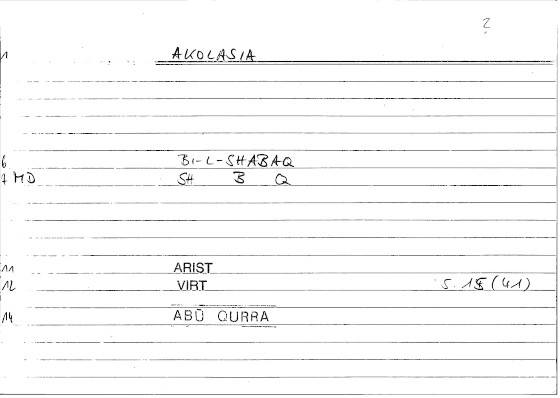 2
1 AKOLASIA
6 BI-L-SHABAQ
7 MD SH B Q
11 ARIST
12 VIRT S. (41)
14 ABŪ QURRA